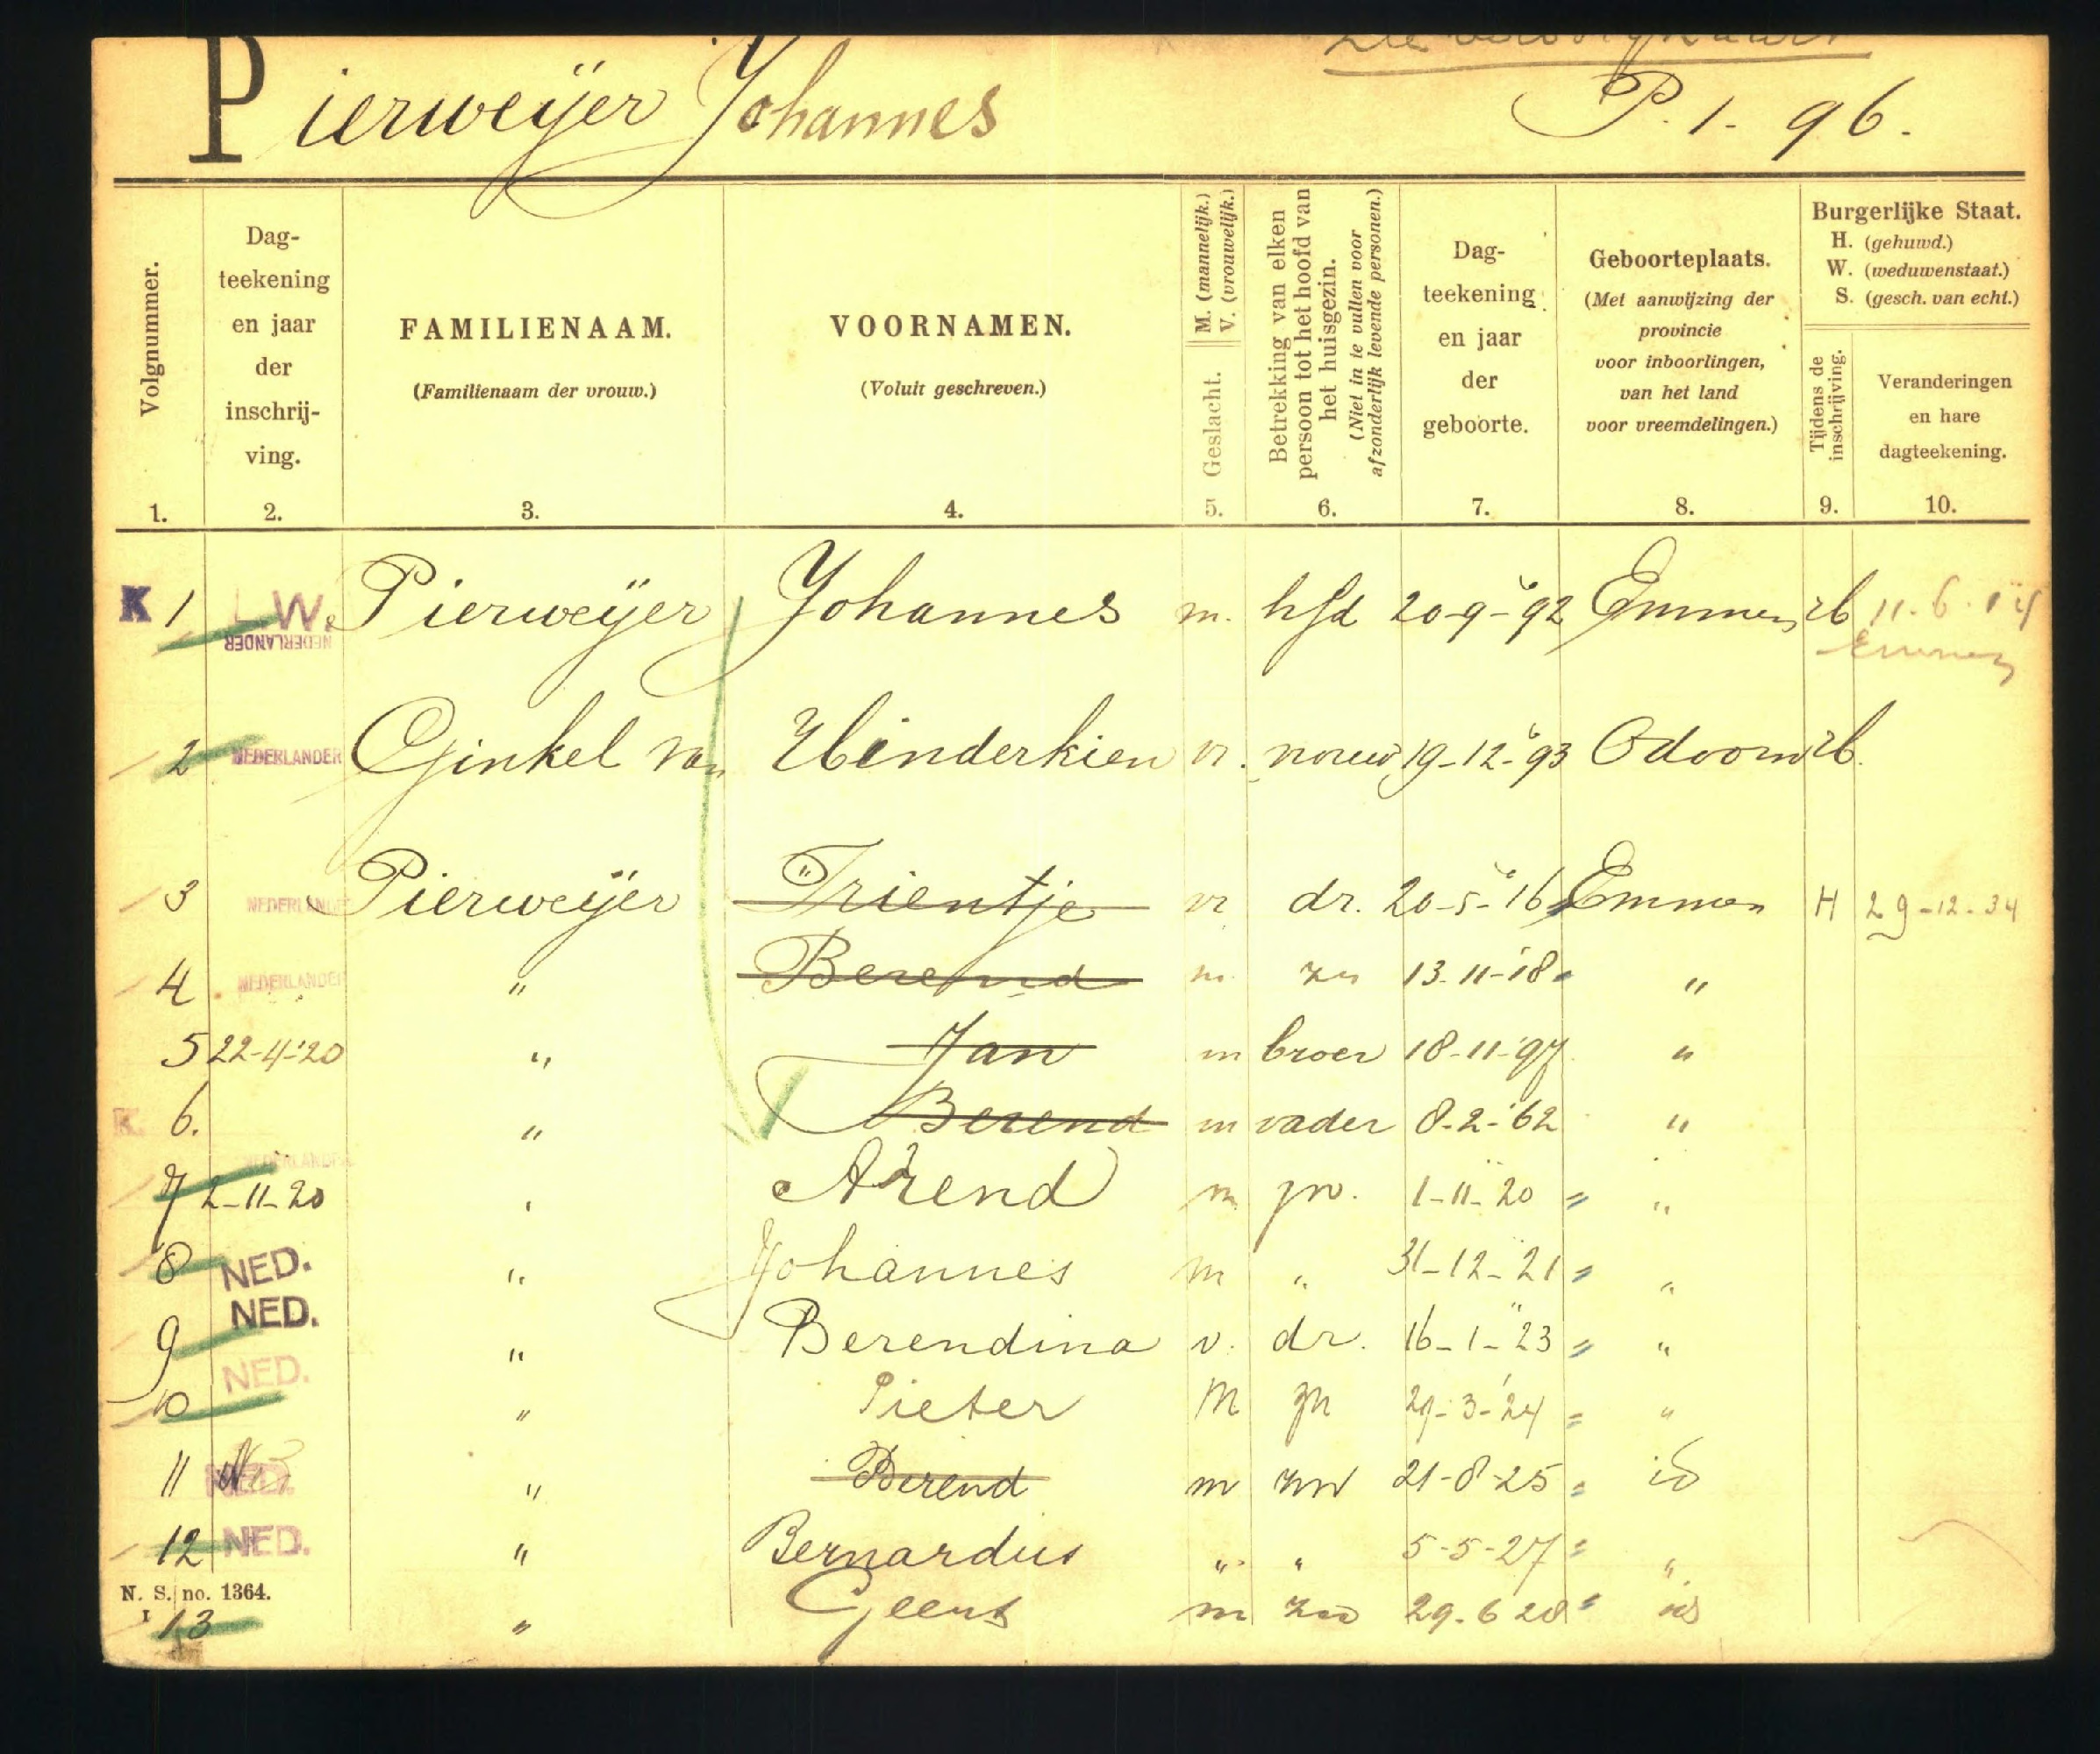 Zie vervolgkaart
Pierweijer Johannes P. 1 - 96.
Volgnummer.
Dag-
teekening
en jaar
der
inschrij-
ving.
FAMILIENAAM.
(Familienaam der vrouw.)
VOORNAMEN.
(Voluit geschreven.)
M. (mannelijk.)
V. (vrouwelijk.)
Geslacht.
Betrekking van elken
persoon tot het hoofd van
het huisgezin.
(Niet in te vullen voor
afzonderlijk levende personen.)
Dag-
teekening
en jaar
der
geboorte.
Geboorteplaats.
(Met aanwijzing der
provincie
voor inboorlingen,
van het land
voor vreemdelingen.)
Burgerlijke Staat.
H. (gehuwd.)
W. (weduwenstaat.)
S. (gesch. van echt.)
Tijdens de
inschrijving.
Veranderingen
en hare
dagteekening.
1. 2. 3. 4. 5. 6. 7. 8. 9. 10.
K 1 L.W. Pierweijer Johannes m. hfd 20-9-'92 Emmen H 11.6.'14
NEDERLANDER Emmen
2 NEDERLANDER Ginkel van Hinderkien vr. vrouw 19-12-'93 Odoorn H.
3 NEDERLANDER Pierweijer Trientje vr dr. 20-5-'16 Emmen H 29-12-34
4 NEDERLANDER " Berend m. zn 13-11-'18 "
5 22-4-'20 " Jan m broer 18-11-'97 "
K. 6. " Berend m vader 8-2-'62 "
NEDERLANDER
7 2-11-20 " Arend m zn. 1-11-20 = "
8 NED. " Johannes m " 31-12-21 = "
NED.
9 " Berendina v. dr. 16-1-23 = "
NED.
10 " Pieter M zn 29-3-'24 = "
11 NED. " Berend m zn 21-8-25 = id
12 NED. " Bernardus " " 5-5-27 = "
N. S. no. 1364.
I
13 " Geert m zn 29-6 28 = id